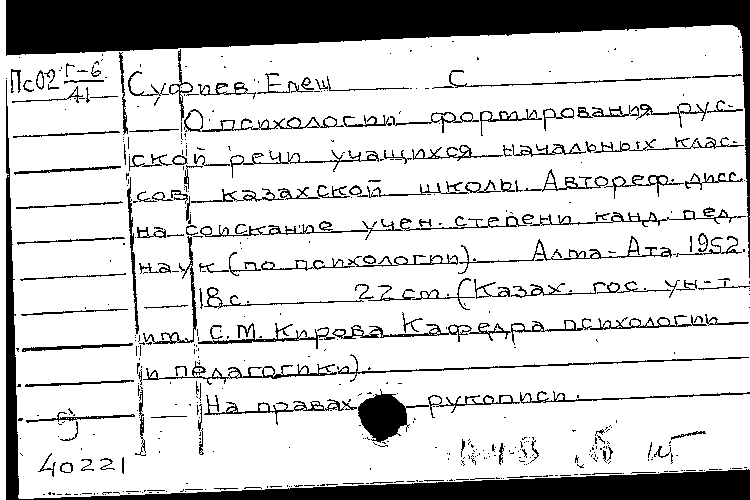 Пс02 Г-6/41 Суфиев, Елеш С
О психологии формирования рус-
ской речи учащихся начальных клас-
сов казахской школы. Автореф. дисс.
на соискание учен. степени канд. пед.
наук (по психологии). Алма-Ата, 1952.
18 с. 22 см. (Казах. гос. ун-т
им. С.М. Кирова Кафедра психологии
и педагогики).
На правах рукописи.
40221